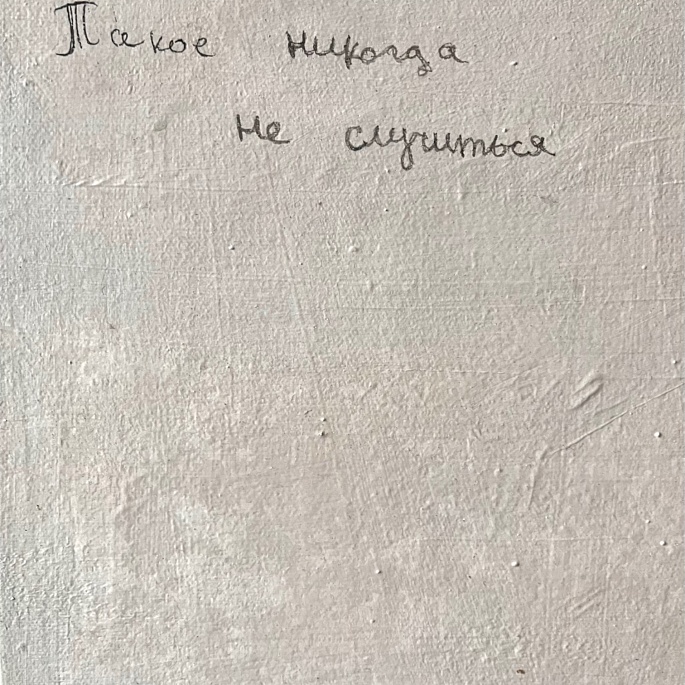 Такое никогда
не случиться